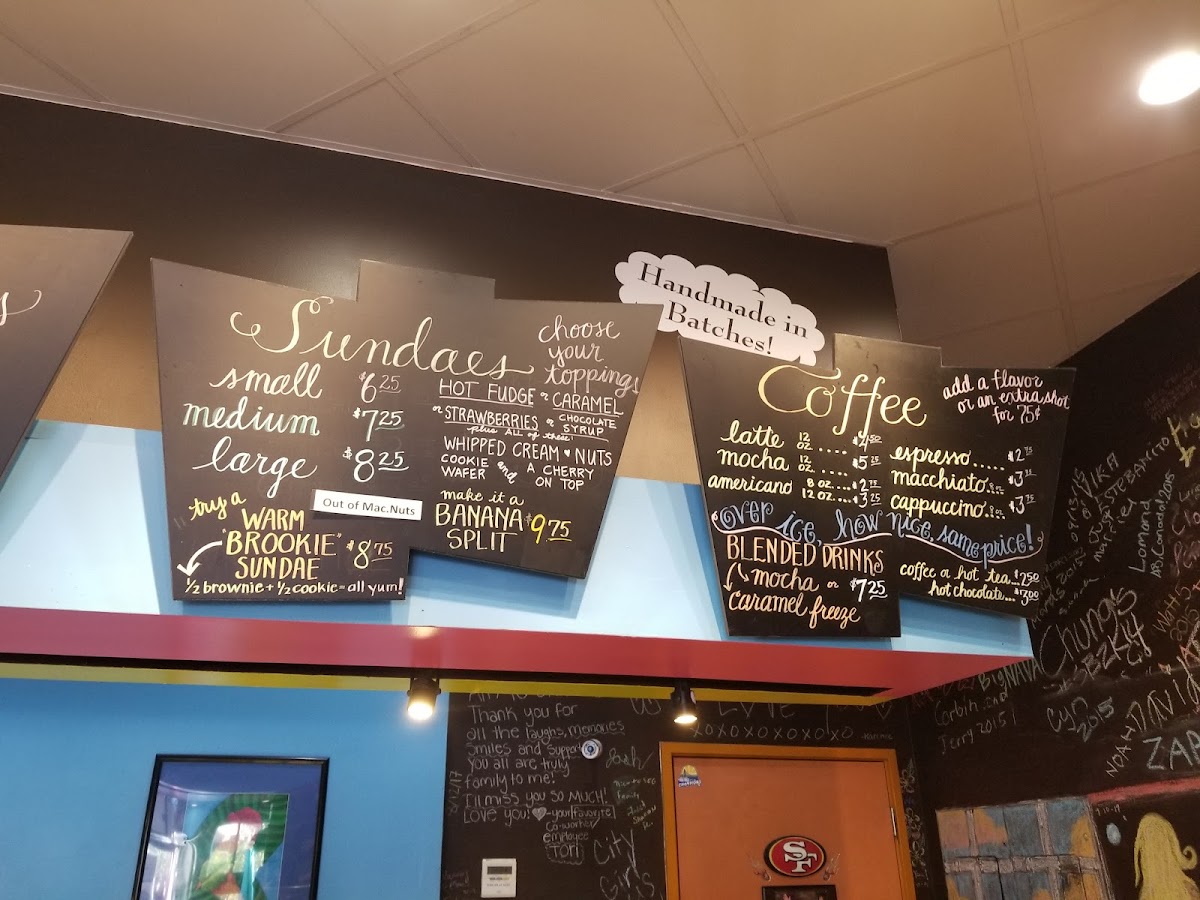 s
Sundaes
small $6.25
medium $7.25
large $8.25
choose
your
toppings
HOT FUDGE or CARAMEL
or STRAWBERRIES or CHOCOLATE SYRUP
plus ALL of these
WHIPPED CREAM ♥ NUTS
COOKIE WAFER and A CHERRY ON TOP
Out of Mac.Nuts
make it a
BANANA SPLIT $9.75
try a
WARM
"BROOKIE"
SUNDAE $8.75
1/2 brownie + 1/2 cookie = all yum!
Handmade in
Batches!
Coffee
add a flavor
or an extra shot
for 75¢
latte 12 oz. .... $4.50
mocha 12 oz. .... $5.25
americano 8 oz. ... $2.75
12 oz. ... $3.25
espresso ..... $2.75
macchiato 8 oz. ...
cappuccino 8 oz. ... $3.75
over ice, how nice, same price!
BLENDED DRINKS
mocha or
caramel freeze $7.25
coffee or hot tea ... $2.50
hot chocolate ... $3.00
Thank you for
all the laughs, memories
smiles and support
you all are truly
family to me!
I'll miss you so MUCH!
Love you! ♥ -your favorite
co-worker
employee
TORI
2/12/17
Josh
LOVE
XOXOXOXOXOXO
City
Girls
SF
Corbin and
Jerry 2015
BigNAVA
CYN
2015
Chunons
NOAH
ZAC
Lomond
2015